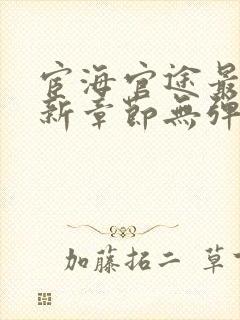 宦海官途最
新章節無彈
加藤拓二 草